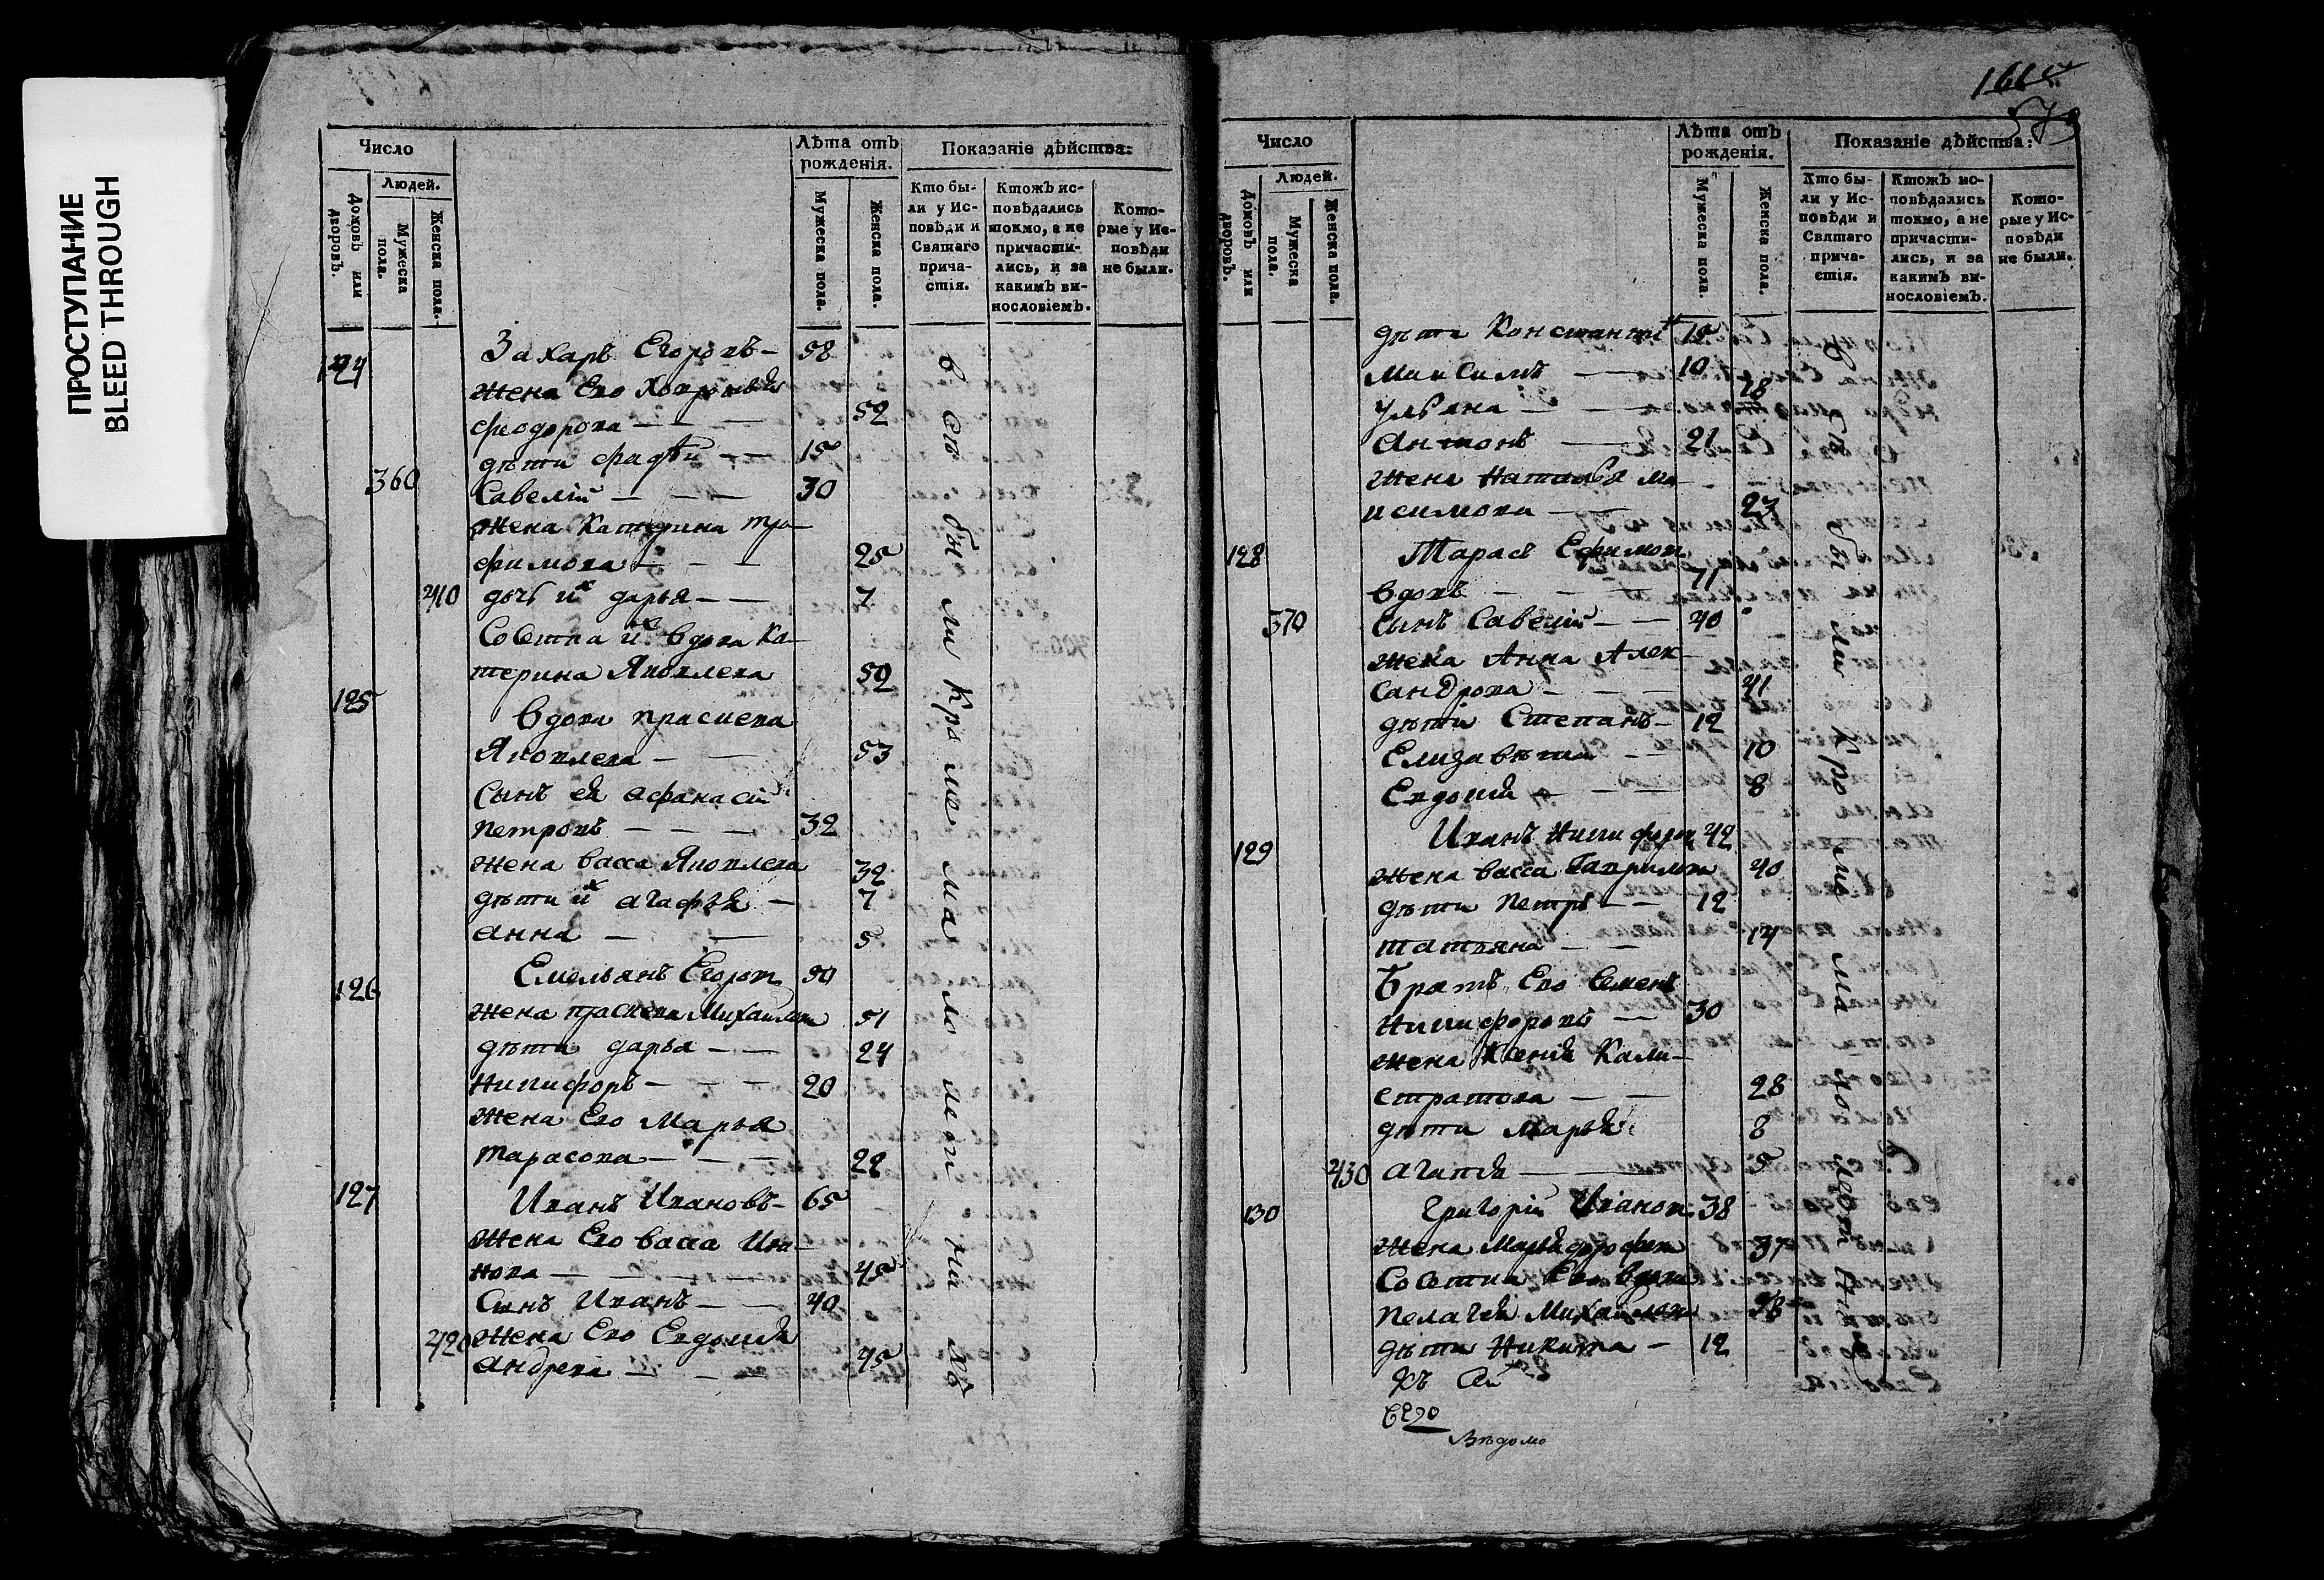 ПРОСТУПАНИЕ
BLEED THROUGH
Число
Людей.
Домовъ или дворовъ.
Мужеска пола.
Женска пола.
Лѣта отъ рожденія.
Мужеска пола.
Женска пола.
Показаніе дѣйства:
Кто бы-
ли у Ис-
повѣди и
Святаго
прича-
стія.
Ктожъ ис-
повѣдались
токмо, а не
причасти-
лись, и за
какимъ ви-
нословіемъ.
Кото-
рые у Ис-
повѣди
не были.
124 Захаръ Егоровъ — 58
жена Его
феодорова — — 52
дѣти фадѣй — — 15
360 Савелій — — — 30
жена Катерина тро—
фимова — — — 25
410 дочь их дарья — — 7
Собтна их вдова Ка—
терина Яковлева 59
125 вдова прасковея
Яковлева — — 53
Сынъ ея афанасій
петровъ — — — 32
жена васса Яковлева 32
дѣти их агафья — 7
анна — — 5
126 Емельянъ Егоров 50
жена прасковя Михаилова 51
дѣти дарья — — 24
Никифоръ — — — 20
жена Его Марья
тарасова — — — 22
127 Иванъ Ивановъ — 65
жена Его васса Ива—
нова — — — 45
Сынъ Иванъ — — 40
420 жена Его Евдокия
андрева — — 45
всѣ были кроме малолетних
Число
Людей.
Домовъ или дворовъ.
Мужеска пола.
Женска пола.
Лѣта отъ рожденія.
Мужеска пола.
Женска пола.
Показаніе дѣйства:
Кто бы-
ли у Ис-
повѣди и
Святаго
прича-
стія.
Ктожъ ис-
повѣдались
токмо, а не
причасти-
лись, и за
какимъ ви-
нословіемъ.
Кото-
рые у Ис-
повѣди
не были.
дѣти Константи 15
Максимъ — — 10
Ульяна — — — 18
антонъ — — 21
жена Наталья Ма—
ксимова — — 23
128 Тарасъ Ефимов
вдовъ — — — 71
370 Сынъ Савелій — — 40
жена Анна Алек—
сандрова — — — 41
дѣти Степанъ — 12
Елизавѣта — — 10
Евдокия — — — 8
129 Иванъ Никифоров 42
жена васса Гаврилова 40
дѣти петръ — — 12
татьяна — — 14
Братъ Его Семенъ
Никифоровъ — — 30
жена Ксенія Кали—
стратова — — 28
дѣти марья 8
430 агапия — — 5
130 Григорій Иванов 38
жена Марья дорофеева 37
Собтна Его вдова
пелагея Михайлова
дѣти Никита — 12
всѣ были кроме малолетних